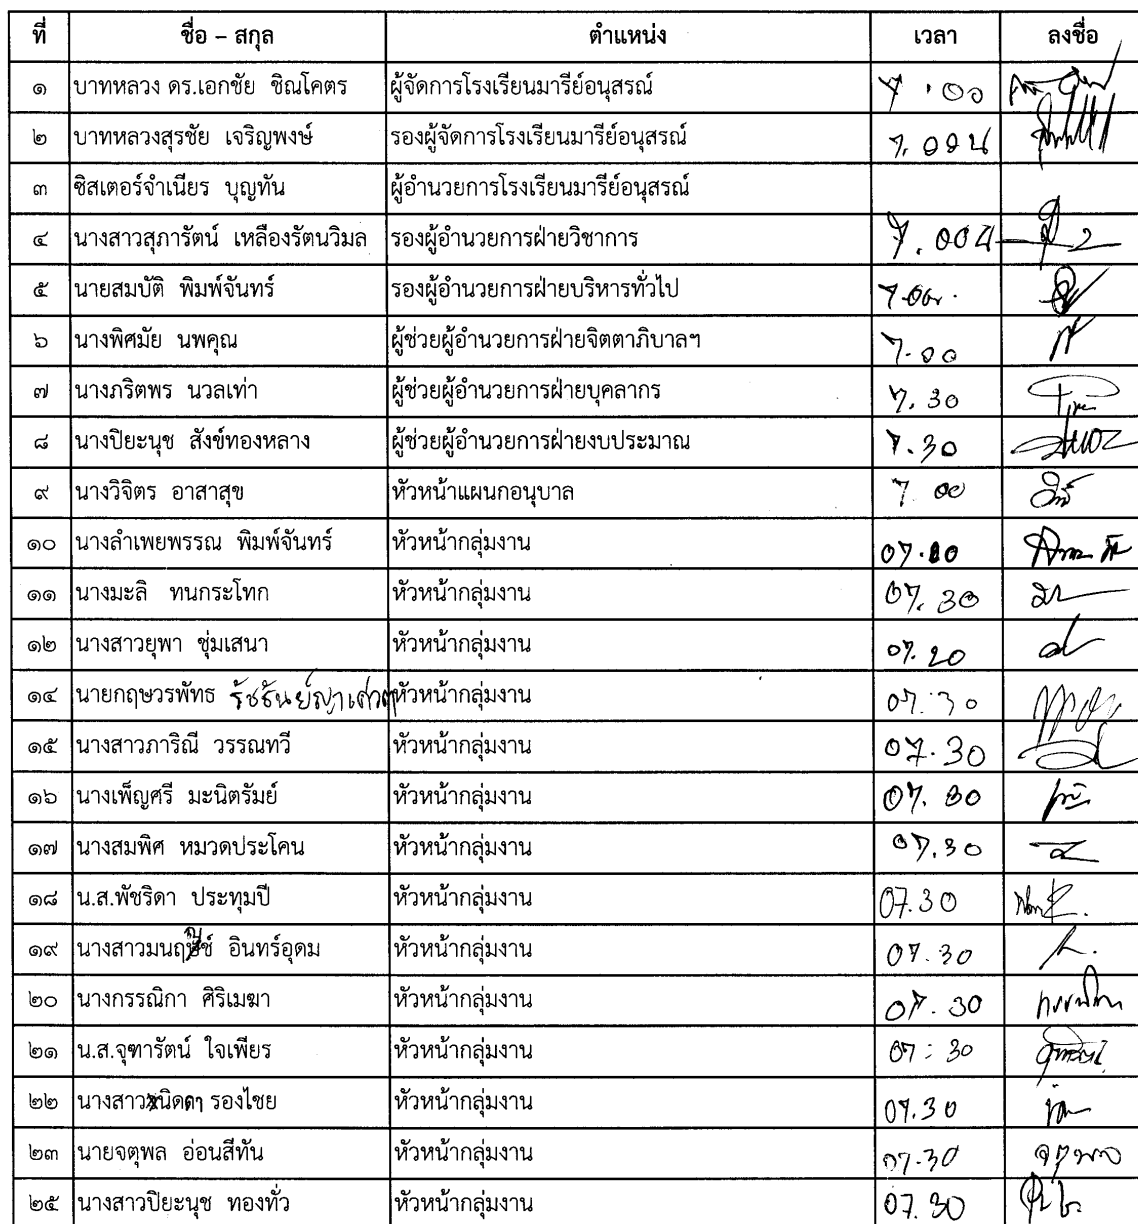 ที่ ชื่อ – สกุล ตำแหน่ง เวลา ลงชื่อ
๑ บาทหลวง ดร.เอกชัย ชิณโคตร ผู้จัดการโรงเรียนมารีย์อนุสรณ์ 7.00
๒ บาทหลวงสุรชัย เจริญพงษ์ รองผู้จัดการโรงเรียนมารีย์อนุสรณ์ 7.00น
๓ ซิสเตอร์จำเนียร บุญทัน ผู้อำนวยการโรงเรียนมารีย์อนุสรณ์
๔ นางสาวสุภารัตน์ เหลืองรัตนวิมล รองผู้อำนวยการฝ่ายวิชาการ 7.00น
๕ นายสมบัติ พิมพ์จันทร์ รองผู้อำนวยการฝ่ายบริหารทั่วไป 7.00น.
๖ นางพิศมัย นพคุณ ผู้ช่วยผู้อำนวยการฝ่ายจิตตาภิบาลฯ 7.00
๗ นางภริตพร นวลเท่า ผู้ช่วยผู้อำนวยการฝ่ายบุคลากร 7.30
๘ นางปิยะนุช สังข์ทองหลาง ผู้ช่วยผู้อำนวยการฝ่ายงบประมาณ 7.30
๙ นางวิจิตร อาสาสุข หัวหน้าแผนกอนุบาล 7.00
๑๐ นางลำเพยพรรณ พิมพ์จันทร์ หัวหน้ากลุ่มงาน
๑๑ นางมะลิ ทนกระโทก หัวหน้ากลุ่มงาน 07.30
๑๒ นางสาวยุพา ชุ่มเสนา หัวหน้ากลุ่มงาน 07.20
๑๔ นายกฤษวรพัทธ หัวหน้ากลุ่มงาน 07.30
๑๕ นางสาวภาริณี วรรณทวี หัวหน้ากลุ่มงาน 07.30
๑๖ นางเพ็ญศรี มะนิตรัมย์ หัวหน้ากลุ่มงาน 07.30
๑๗ นางสมพิศ หมวดประโคน หัวหน้ากลุ่มงาน 07.30
๑๘ น.ส.พัชริดา ประทุมปี หัวหน้ากลุ่มงาน 07.30
๑๙ อินทร์อุดม หัวหน้ากลุ่มงาน 07.30
๒๐ นางกรรณิกา ศิริเมฆา หัวหน้ากลุ่มงาน 07.30 กรรณิกา
๒๑ น.ส.จุฑารัตน์ ใจเพียร หัวหน้ากลุ่มงาน 07:30 จุฑารัตน์
๒๒ รองไชย หัวหน้ากลุ่มงาน 07.30
๒๓ นายจตุพล อ่อนสีทัน หัวหน้ากลุ่มงาน 07.30 จตุพล
๒๕ นางสาวปิยะนุช ทองทั่ว หัวหน้ากลุ่มงาน 07.30